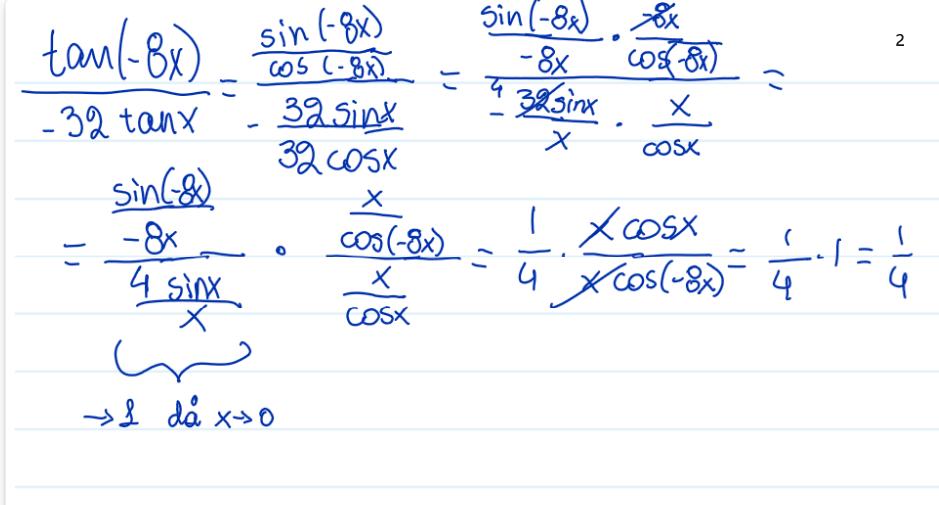 2
tan(-8x) / -32 tanx = (sin(-8x) / cos(-8x)) / (- 32 sinx / 32 cosx) = (sin(-8x) / -8x · -8x / cos(-8x)) / (- 4 32 sinx / x · x / cosx) =
= (sin(-8x) / -8x) / (4 sinx / x) · (x / cos(-8x)) / (x / cosx) = 1/4 · x cosx / x cos(-8x) = 1/4 · 1 = 1/4
→ 1 då x→0